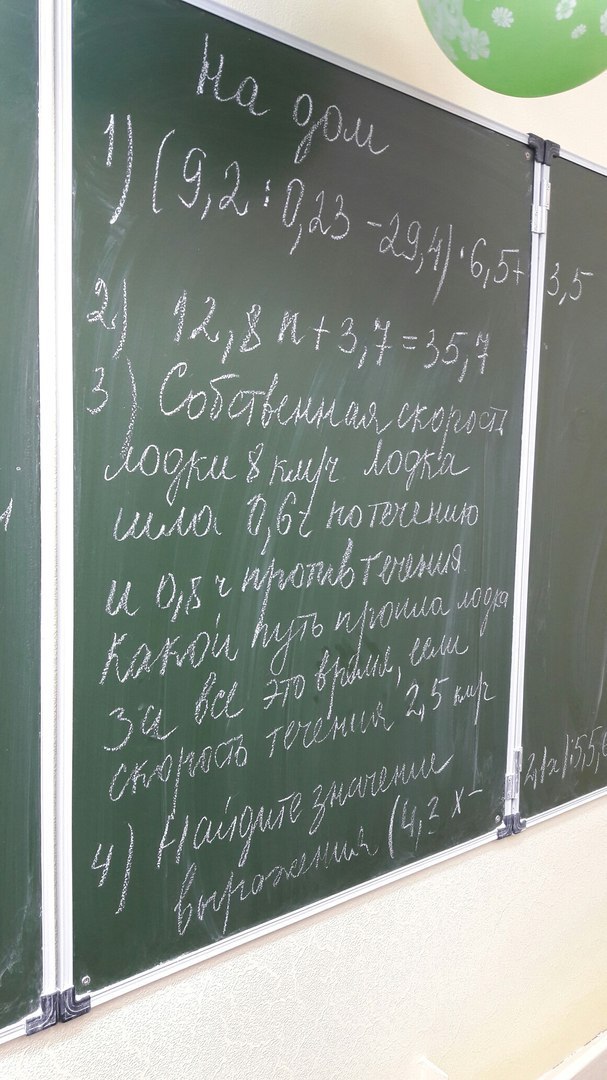 На дом
1) (9,2 : 0,23 - 29,4) · 6,5 + 3,5
2) 12,8 n + 3,7 = 35,7
3) Собственная скорость
лодки 8 км/ч лодка
шла 0,6 ч по течению
и 0,8 ч против течения
Какой путь прошла лодка
за все это время, если
скорость течения 2,5 км/ч
4) Найдите значение
выражения (4,2 x -